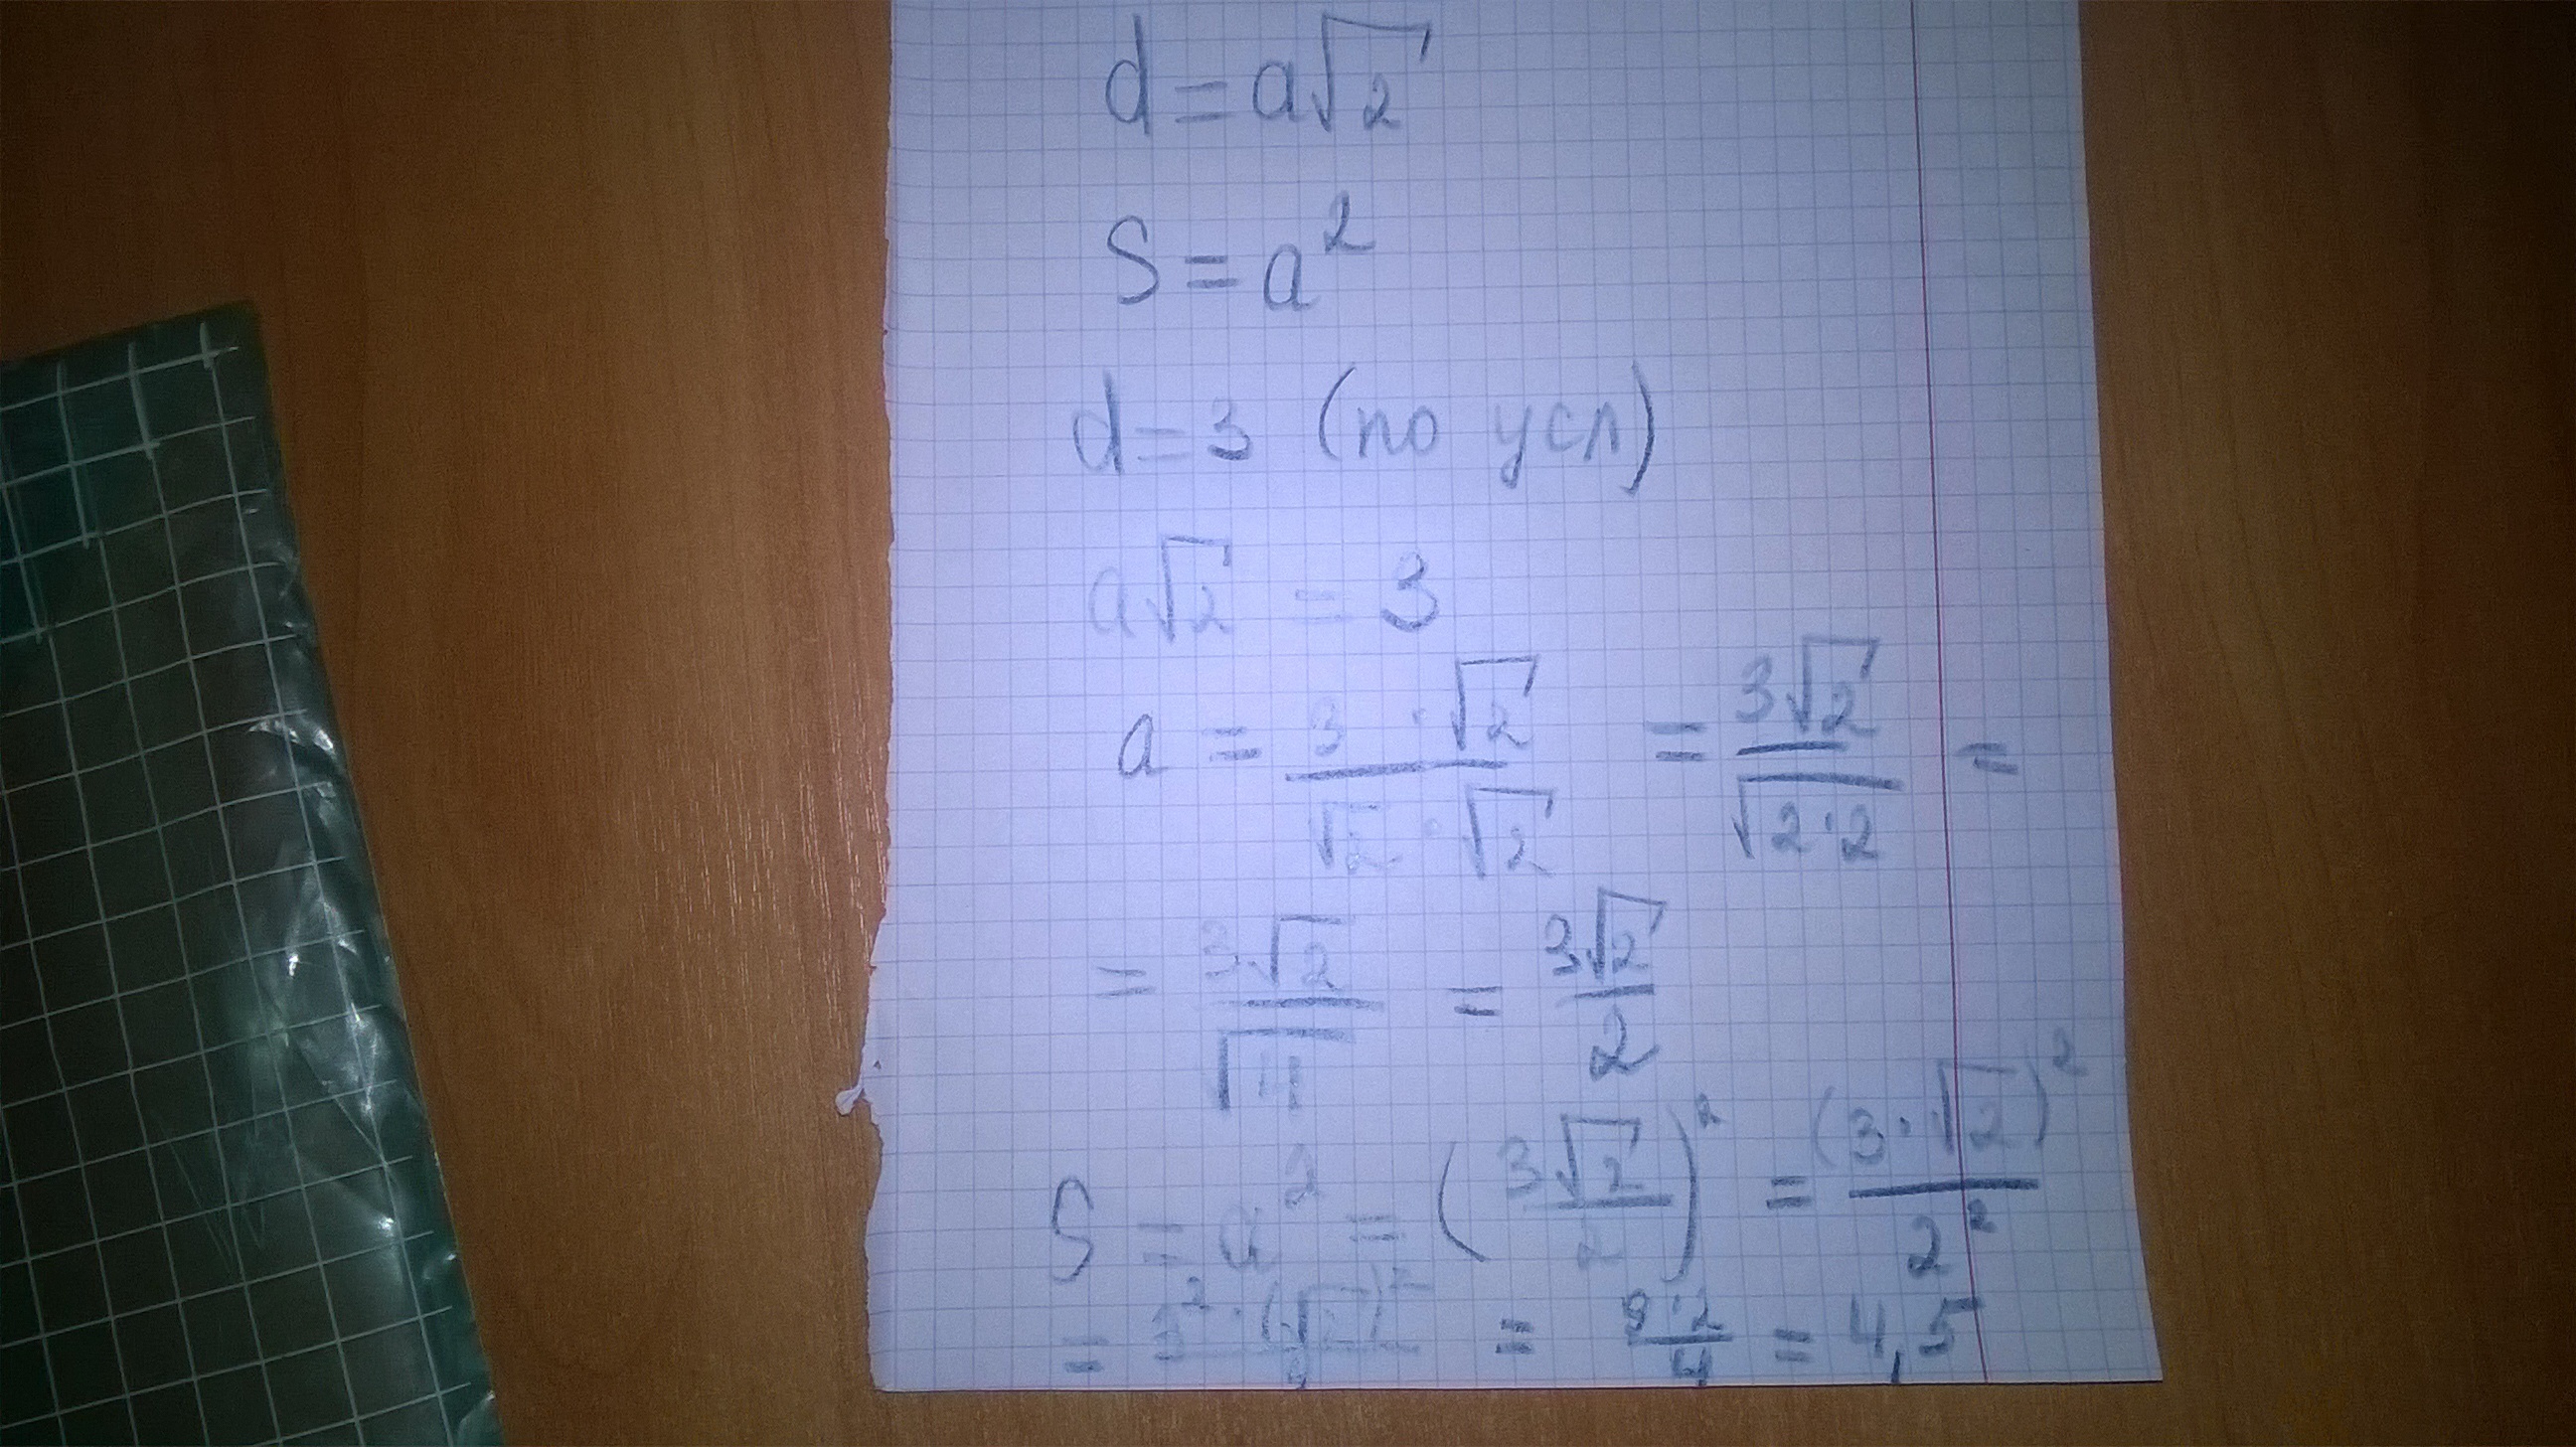 d = a√2
S = a²
d = 3 (по усл)
a√2 = 3
a = (3 · √2)/(√2 · √2) = 3√2/√(2·2) =
= 3√2/√4 = 3√2/2
S = a² = (3√2/2)² = (3·√2)²/2²
= 3²·(√2)²/4 = 9·2/4 = 4,5